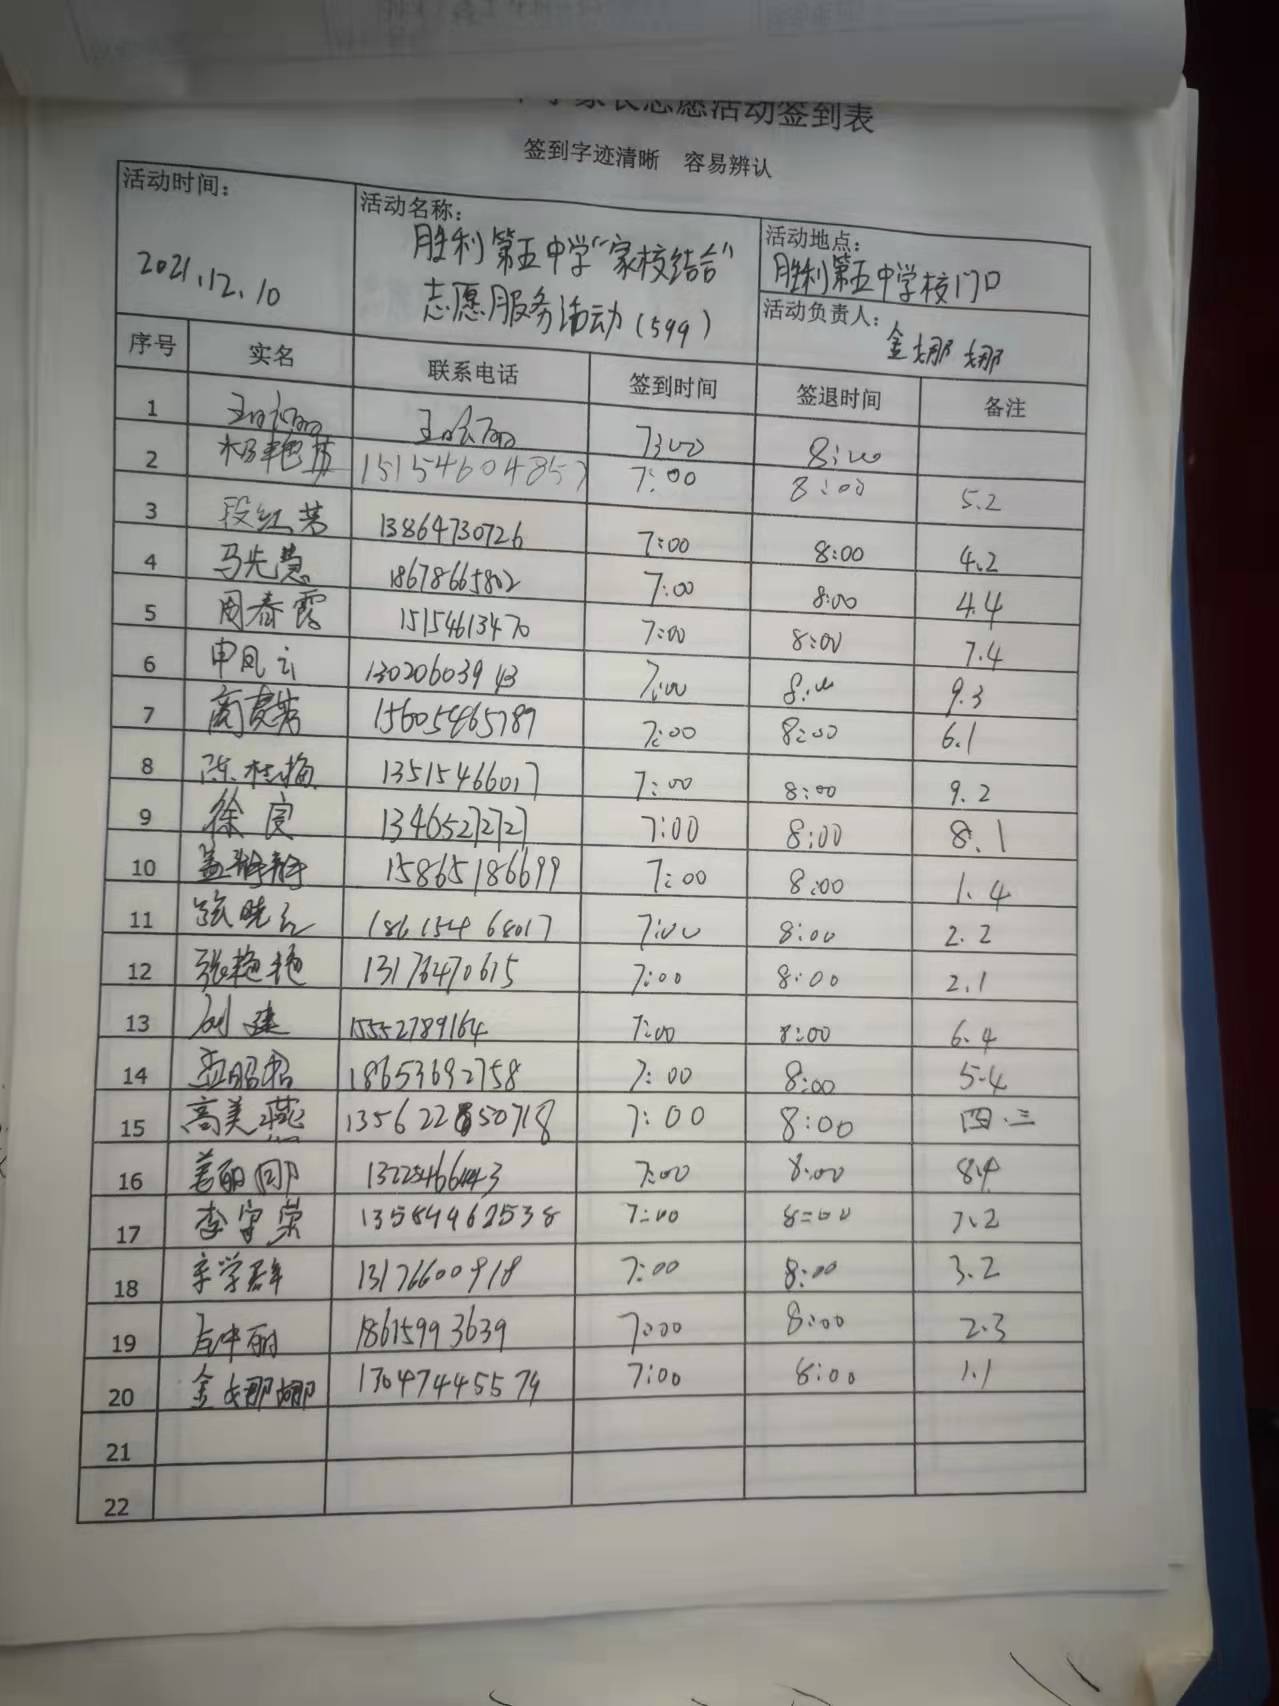 家长志愿活动签到表
签到字迹清晰 容易辨认
活动时间: 2021.12.10
活动名称: 胜利第五中学“家校结合”
志愿服务活动(599)
活动地点: 胜利第五中学校门口
活动负责人: 金娜娜
序号 实名 联系电话 签到时间 签退时间 备注
1 7:00 8:00
2 杨艳芳 15154604857 7:00 8:00 5.2
3 段红芳 13864730726 7:00 8:00 4.2
4 马先慧 18678665802 7:00 8:00 4.4
5 周春霞 15154613470 7:00 8:00 7.4
6 申凤云 13020603943 7:00 8:00 9.3
7 15605465789 7:00 8:00 6.1
8 陈桂梅 13515466017 7:00 8:00 9.2
9 徐 13465272727 7:00 8:00 8.1
10 盖静静 15865186699 7:00 8:00 1.4
11 张晓红 18615468017 7:00 8:00 2.2
12 张艳艳 13176470615 7:00 8:00 2.1
13 刘建 15552789164 7:00 8:00 6.4
14 孟昭君 18653692758 7:00 8:00 5.4
15 高美燕 13562250718 7:00 8:00 四.三
16 姜丽娜 7:00 8:00 8.4
17 李守荣 13589962538 7:00 8:00 7.2
18 辛学群 13176600918 7:00 8:00 3.2
19 左中丽 18615993639 7:00 8:00 2.3
20 金娜娜 13047445579 7:00 8:00 1.1
21
22